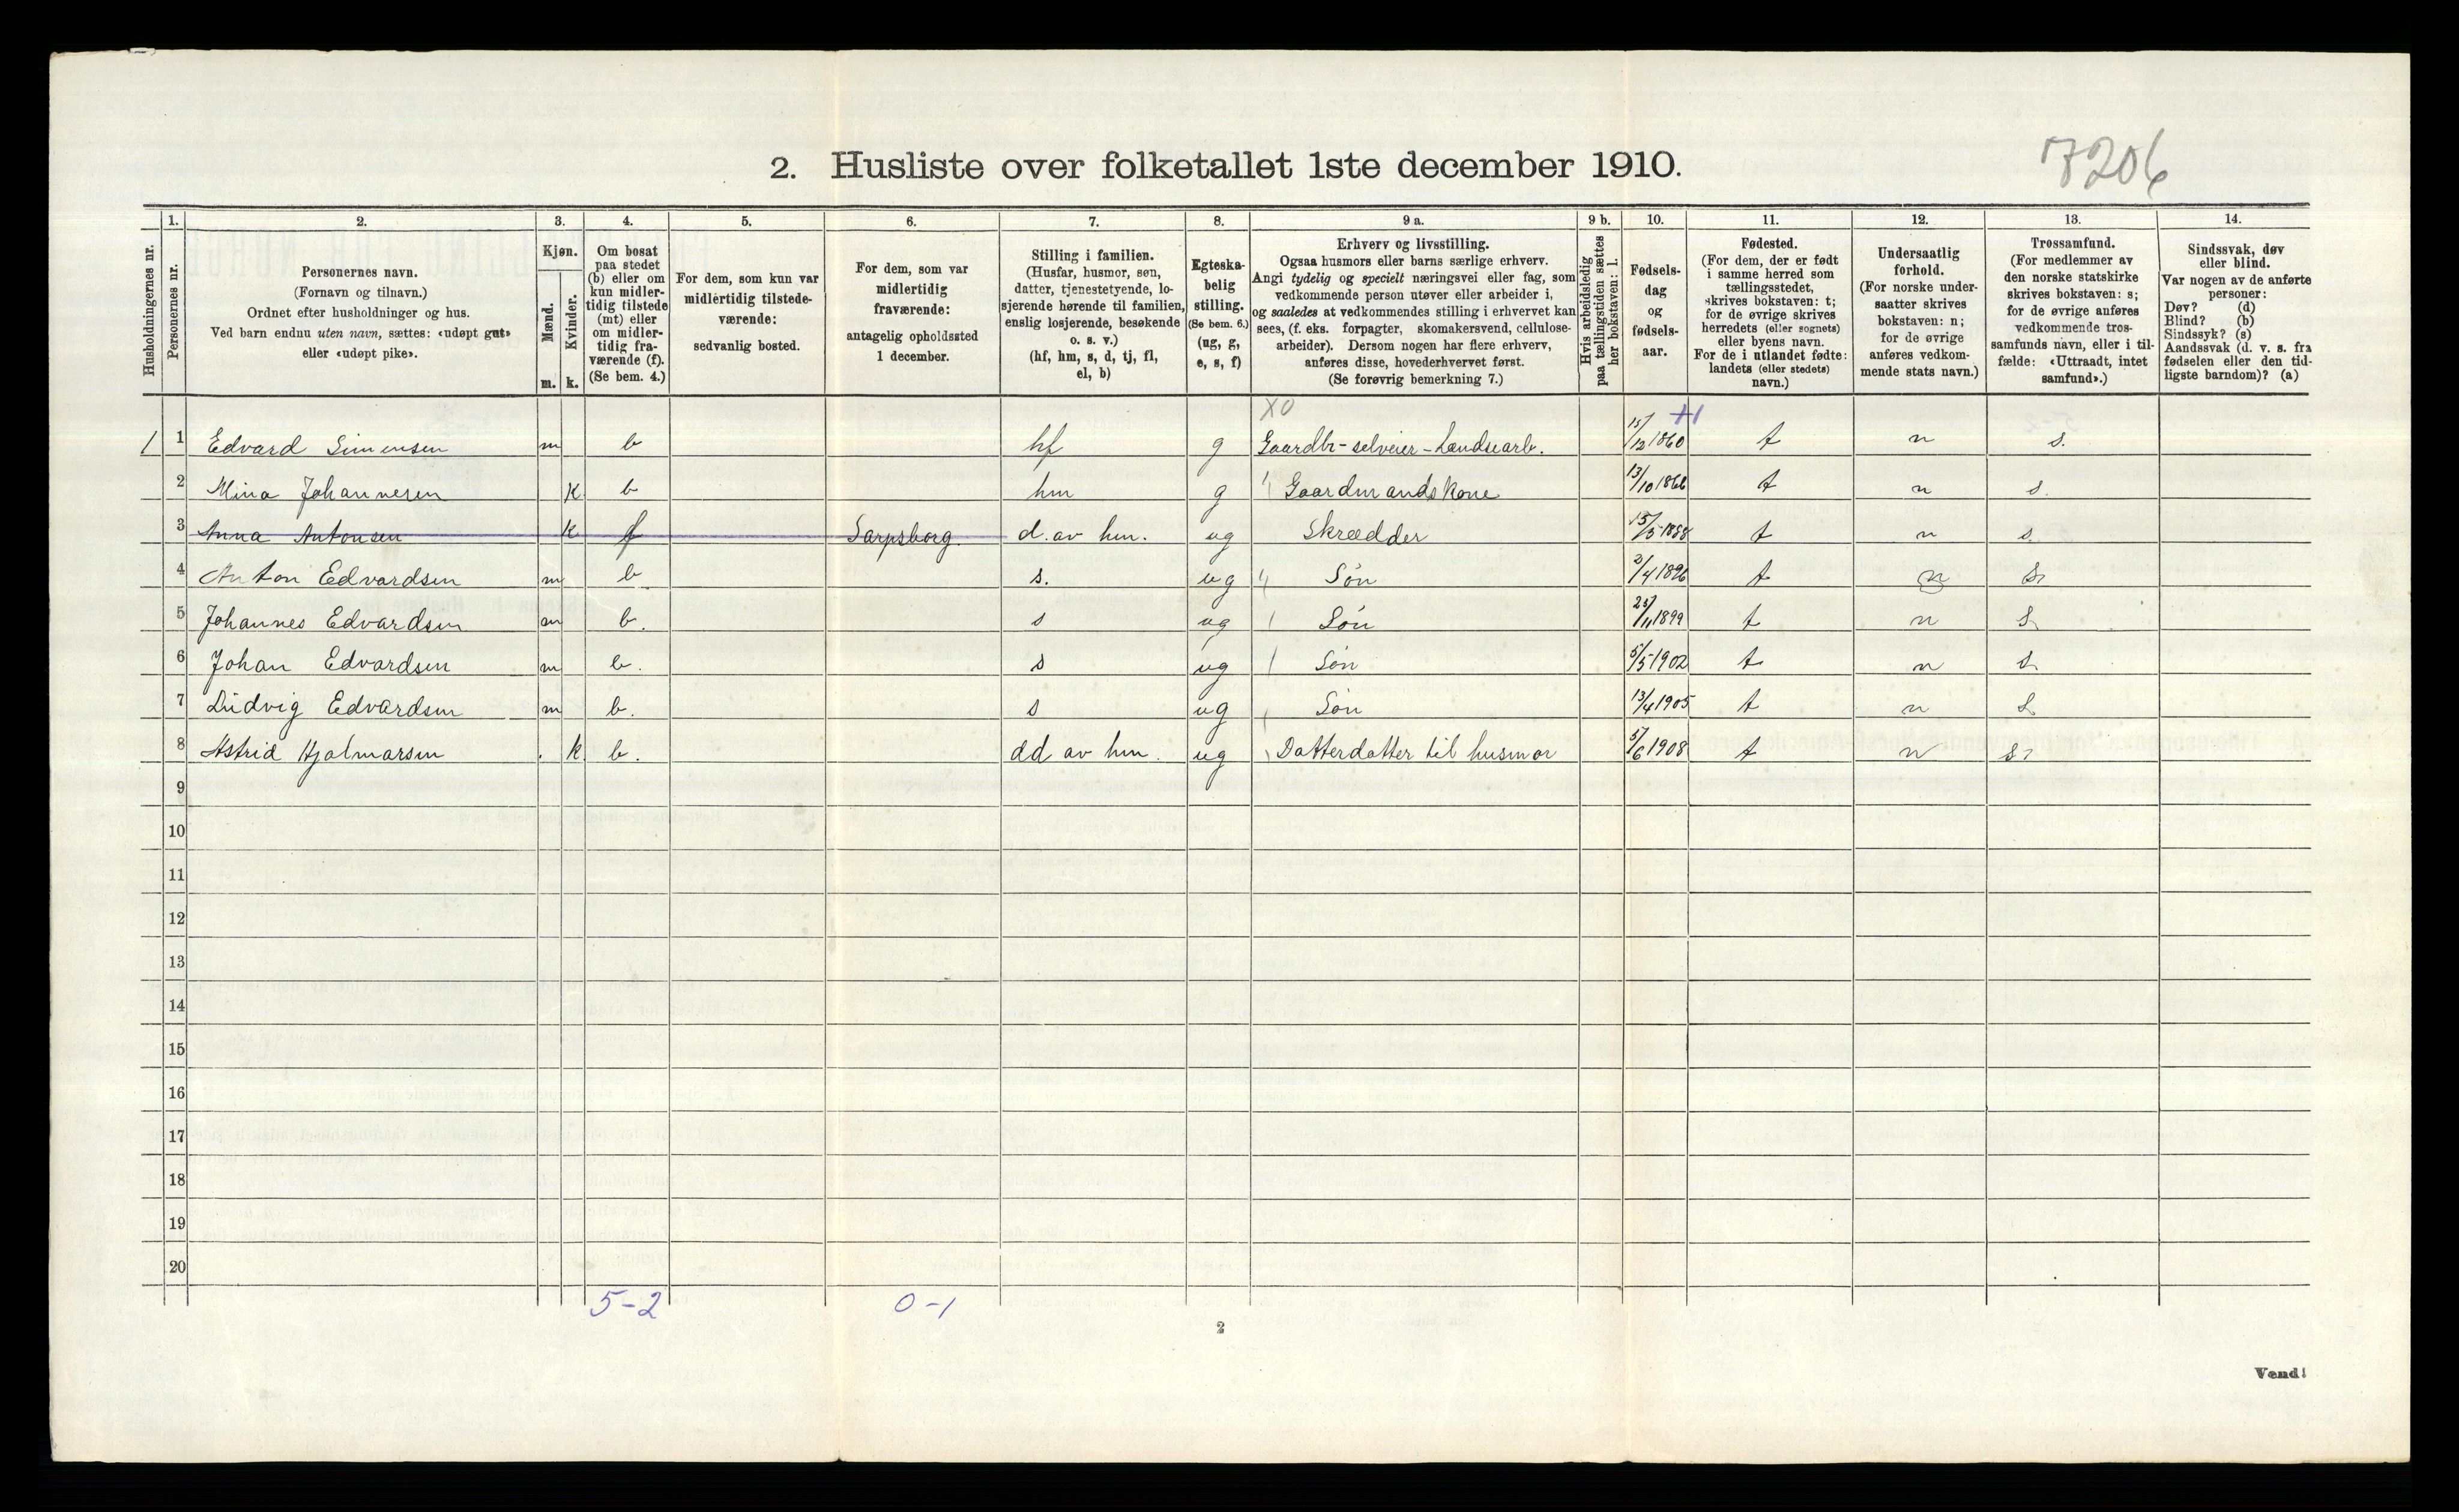 7206
2. Husliste over folketallet 1ste december 1910.
1. 2. 3. 4. 5. 6. 7. 8. 9 a. 9 b. 10. 11. 12. 13. 14.
Husholdningernes nr.
Personernes nr.
Personernes navn.
(Fornavn og tilnavn.)
Ordnet efter husholdninger og hus.
Ved barn endnu uten navn, sættes: «udøpt gut»
eller «udøpt pike».
Kjøn.
Mænd.
Kvinder.
m. k.
Om bosat
paa stedet
(b) eller om
kun midler-
tidig tilstede
(mt) eller
om midler-
tidig fra-
værende (f).
(Se bem. 4.)
For dem, som kun var
midlertidig tilstede-
værende:
sedvanlig bosted.
For dem, som var
midlertidig
fraværende:
antagelig opholdssted
1 december.
Stilling i familien.
(Husfar, husmor, søn,
datter, tjenestetyende, lo-
sjerende hørende til familien,
enslig losjerende, besøkende
o. s. v.)
(hf, hm, s, d, tj, fl,
el, b)
Egteska-
belig
stilling.
(Se bem. 6.)
(ug, g,
e, s, f)
Erhverv og livsstilling.
Ogsaa husmors eller barns særlige erhverv.
Angi tydelig og specielt næringsvei eller fag, som
vedkommende person utøver eller arbeider i,
og saaledes at vedkommendes stilling i erhvervet kan
sees, (f. eks. forpagter, skomakersvend, cellulose-
arbeider). Dersom nogen har flere erhverv,
anføres disse, hovederhvervet først.
(Se forøvrig bemerkning 7.)
Hvis arbeidsledig
paa tællingstiden sættes
her bokstaven: l.
Fødsels-
dag
og
fødsels-
aar.
Fødested.
(For dem, der er født
i samme herred som
tællingsstedet,
skrives bokstaven: t;
for de øvrige skrives
herredets (eller sognets)
eller byens navn.
For de i utlandet fødte:
landets (eller stedets)
navn.)
Undersaatlig
forhold.
(For norske under-
saatter skrives
bokstaven: n;
for de øvrige
anføres vedkom-
mende stats navn.)
Trossamfund.
(For medlemmer av
den norske statskirke
skrives bokstaven: s;
for de øvrige anføres
vedkommende tros-
samfunds navn, eller i til-
fælde: «Uttraadt, intet
samfund».)
Sindssvak, døv
eller blind.
Var nogen av de anførte
personer:
Døv? (d)
Blind? (b)
Sindssyk? (s)
Aandssvak (d. v. s. fra
fødselen eller den tid-
ligste barndom)? (a)
XO
1 1 Edvard Simensen m b hf g Gaardbr-selveier-Lændsearb. 15/12 1860 t n s.
2 Mina Johannesen K b hm g Gaardmandskone 13/10 1866 t n s.
3 Anna Antonsen K f Sarpsborg. d. av hm. ug Skrædder 15/5 1888 t n s.
4 Anton Edvardsen m b s. ug Søn 2/4 1896 t n s.
5 Johannes Edvardsen m b. s ug Søn 25/11 1899 t n s.
6 Johan Edvardsen m b. s ug Søn 5/5 1902 t n s.
7 Ludvig Edvardsen m b. s ug Søn 13/4 1905 t n s
8 Astrid Hjalmarsen k b. dd av hm. ug Datterdatter til husmor 5/6 1908 t n s
9
10
11
12
13
14
15
16
17
18
19
20
5-2 0-1
2
Vend!